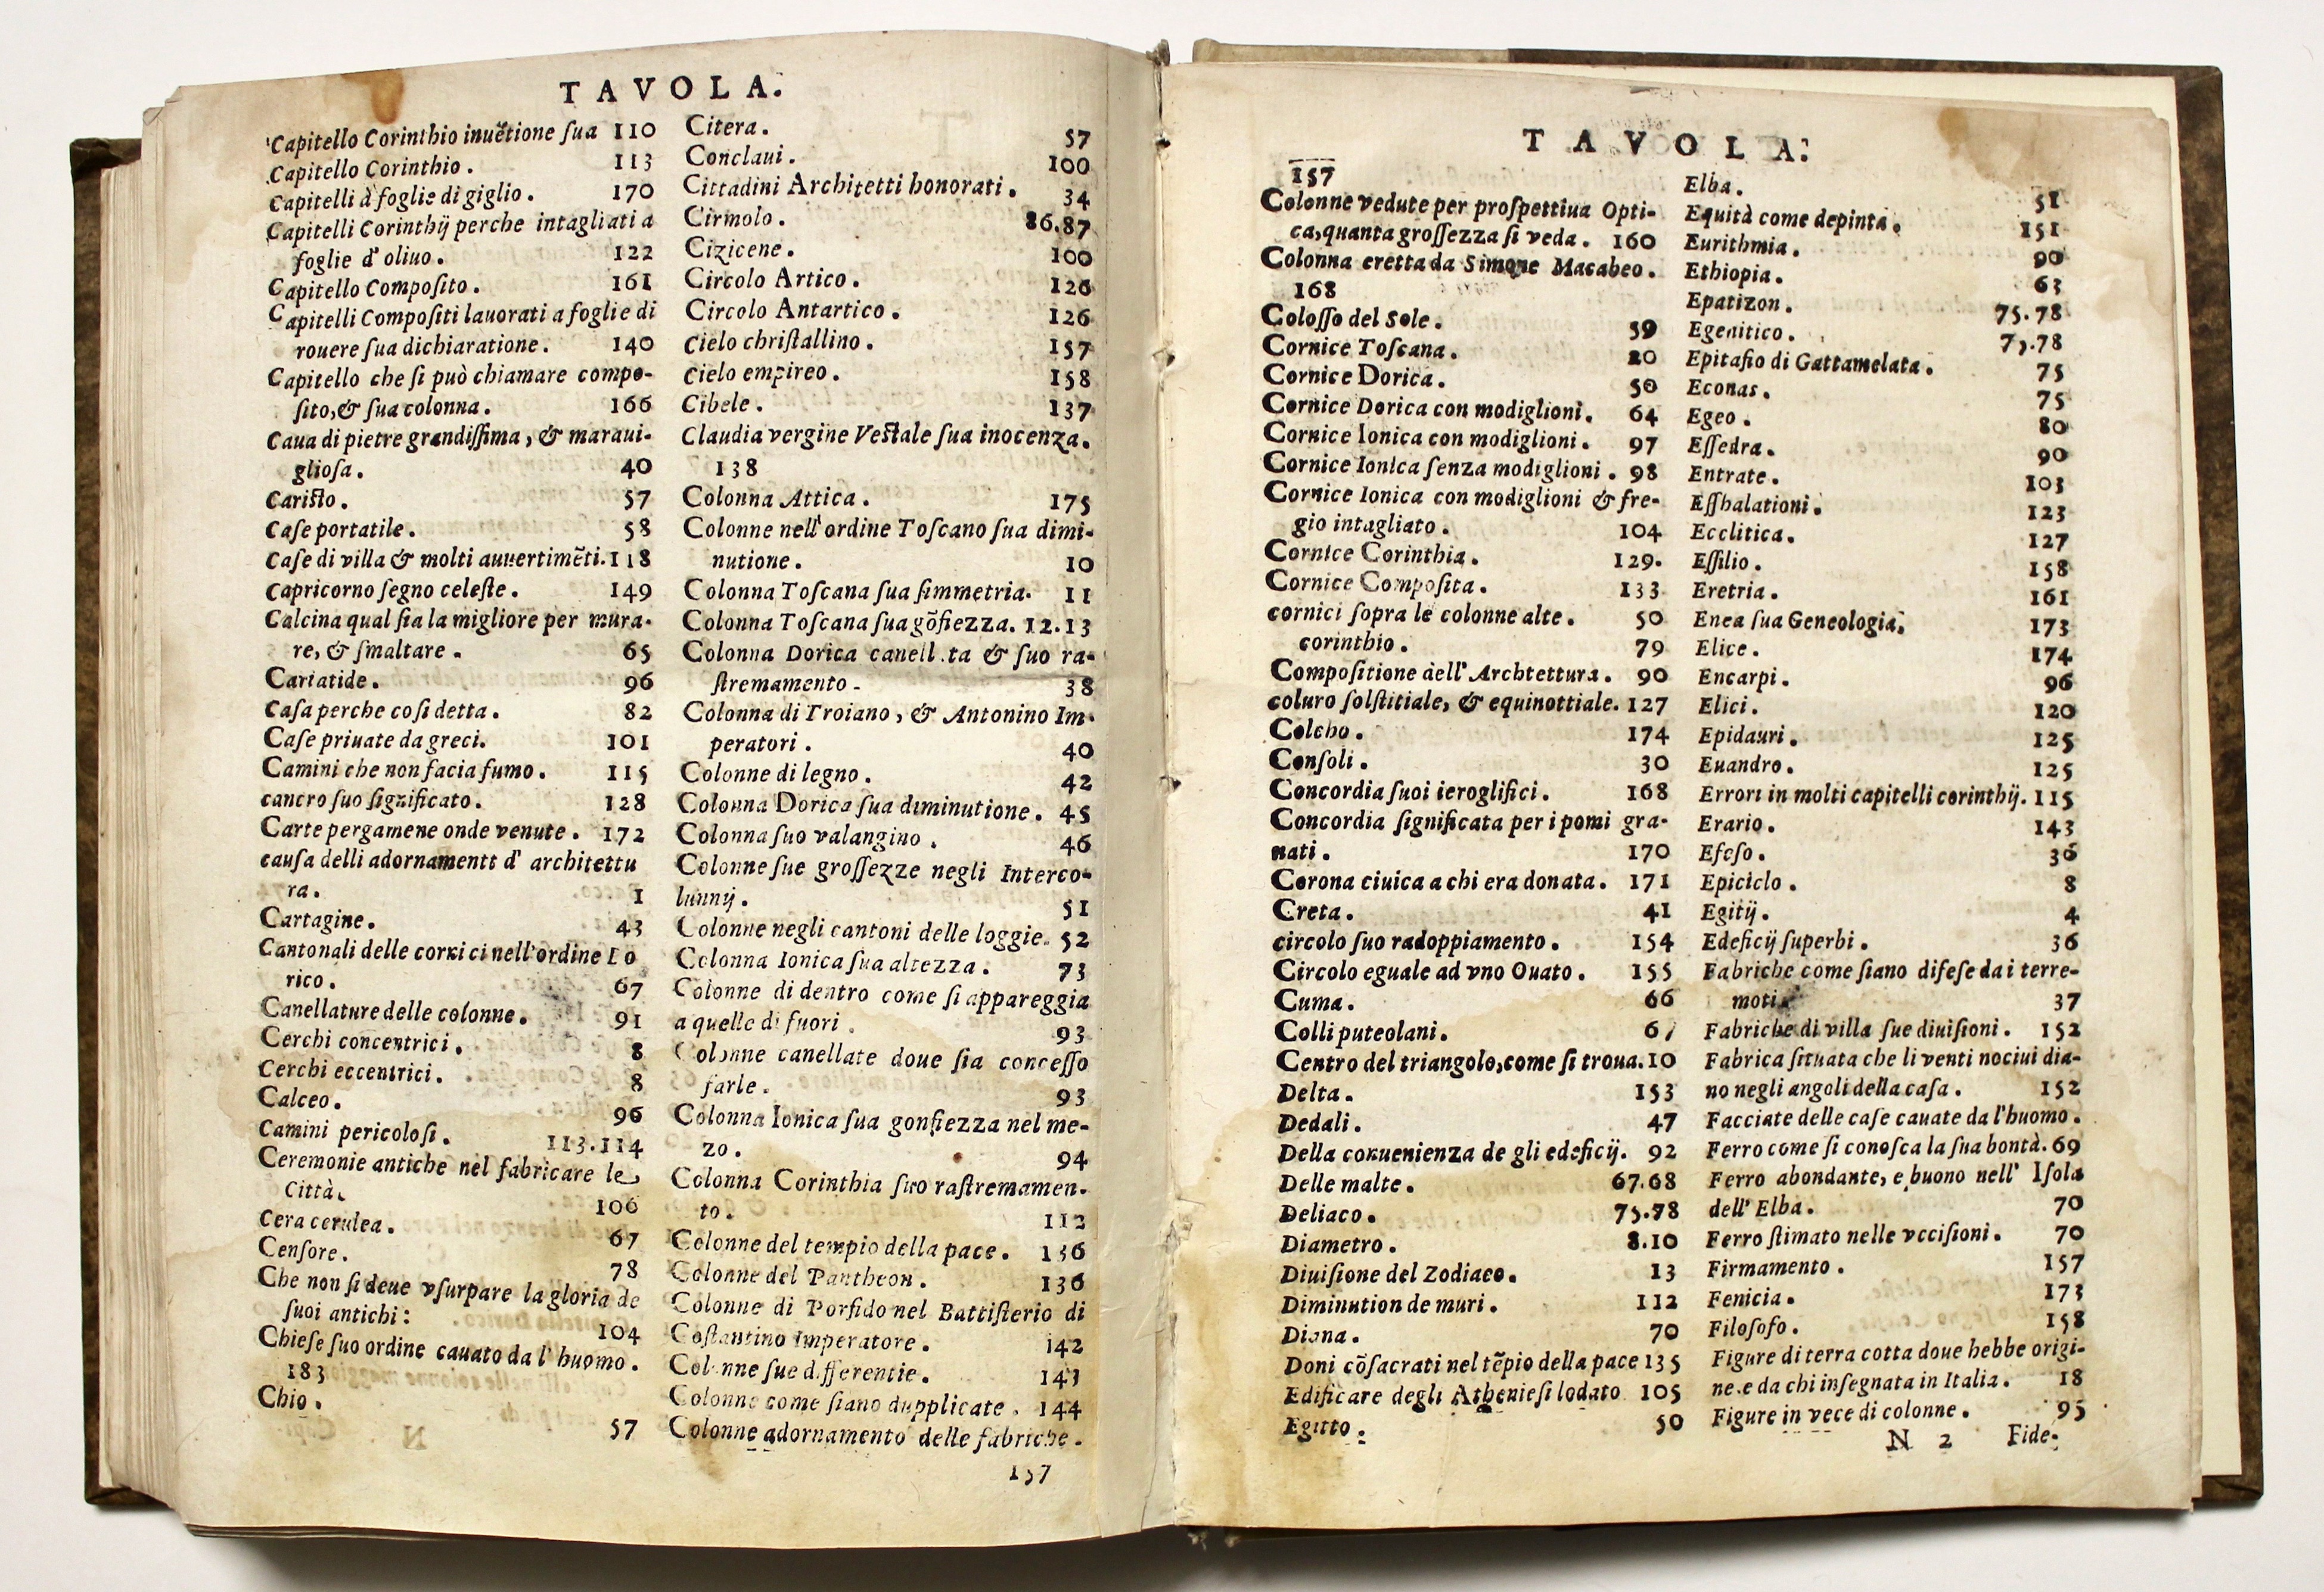 TAVOLA.
Capitello Corinthio inuẽtione ſua 110
Capitello Corinthio. 113
Capitelli à foglie di giglio. 170
Capitelli Corinthij perche intagliati a
foglie d' oliuo. 122
Capitello Compoſito. 161
Capitelli Compoſiti lauorati a foglie di
rouere ſua dichiaratione. 140
Capitello che ſi può chiamare compo-
ſito, & ſua colonna. 166
Caua di pietre grandiſſima, & maraui-
glioſa. 40
Cariſto. 57
Caſe portatile. 58
Caſe di villa & molti auuertimẽti. 118
Capricorno ſegno celeſte. 149
Calcina qual ſia la migliore per mura-
re, & ſmaltare. 65
Cariatide. 96
Caſa perche coſi detta. 82
Caſe priuate da greci. 101
Camini che non facia fumo. 115
cancro ſuo ſignificato. 128
Carte pergamene onde venute. 172
cauſa delli adornamentt d' architettu
ra. 1
Cartagine. 43
Cantonali delle cornici nell'ordine Do
rico. 67
Canellature delle colonne. 91
Cerchi concentrici. 8
Cerchi eccentrici. 8
Calceo. 96
Camini pericoloſi. 113.114
Ceremonie antiche nel fabricare le
Città. 106
Cera cerulea. 67
Cenſore. 78
Che non ſi deue vſurpare la gloria de
ſuoi antichi: 104
Chieſe ſuo ordine cauato da l' huomo.
183
Chio. 57
Citera. 57
Conclaui. 100
Cittadini Architetti honorati. 34
Cirmolo. 86.87
Cizicene. 100
Circolo Artico. 126
Circolo Antartico. 126
Cielo chriſtallino. 157
Cielo empireo. 158
Cibele. 137
Claudia vergine Veſtale ſua inocenza.
138
Colonna Attica. 175
Colonne nell' ordine Toſcano ſua dimi-
nutione. 10
Colonna Toſcana ſua ſimmetria. 11
Colonna Toſcana ſua gõfiezza. 12.13
Colonna Dorica canell.ta & ſuo ra-
ſtremamento. 38
Colonna di Troiano, & Antonino Im-
peratori. 40
Colonne di legno. 42
Colonna Dorica ſua diminutione. 45
Colonna ſuo valangino. 46
Colonne ſue groſſezze negli Interco-
lunnij. 51
Colonne negli cantoni delle loggie. 52
Colonna Ionica ſua altezza. 73
Colonne di dentro come ſi appareggia
a quelle di fuori. 93
Colonne canellate doue ſia conceſſo
farle. 93
Colonna Ionica ſua gonfiezza nel me-
zo. 94
Colonna Corinthia ſuo raſtremamen-
to. 112
Colonne del tempio della pace. 136
Colonne del Pantheon. 136
Colonne di Porfido nel Battiſterio di
Coſtantino Imperatore. 142
Colonne ſue differentie. 143
Colonne come ſiano dupplicate. 144
Colonne adornamento delle fabriche.
157
TAVOLA.
157
Colonne vedute per proſpettiua Opti-
ca, quanta groſſezza ſi veda. 160
Colonna eretta da Simone Macabeo.
168
Coloſſo del Sole. 59
Cornice Toſcana. 20
Cornice Dorica. 50
Cornice Dorica con modiglioni. 64
Cornice Ionica con modiglioni. 97
Cornice Ionica ſenza modiglioni. 98
Cornice Ionica con modiglioni & fre-
gio intagliato. 104
Cornice Corinthia. 129.
Cornice Compoſita. 133
cornici ſopra le colonne alte. 50
corinthio. 79
Compoſitione dell' Archtettura. 90
coluro ſolſtitiale, & equinottiale. 127
Colcho. 174
Conſoli. 30
Concordia ſuoi ieroglifici. 168
Concordia ſignificata per i pomi gra-
nati. 170
Corona ciuica a chi era donata. 171
Creta. 41
circolo ſuo radoppiamento. 154
Circolo eguale ad vno Ouato. 155
Cuma. 66
Colli puteolani. 67
Centro del triangolo, come ſi troua. 10
Delta. 153
Dedali. 47
Della conuenienza de gli edeficij. 92
Delle malte. 67.68
Deliaco. 75.78
Diametro. 8.10
Diuiſione del Zodiaco. 13
Diminution de muri. 112
Diana. 70
Doni cõſacrati nel tẽpio della pace 135
Edificare degli Athenieſi lodato 105
Egitto. 50
Elba. 51
Equità come depinta. 151
Eurithmia. 90
Ethiopia. 63
Epatizon. 75.78
Egenitico. 75.78
Epitafio di Gattamelata. 75
Econas. 75
Egeo. 80
Eſſedra. 90
Entrate. 103
Eſſhalationi. 123
Ecclitica. 127
Eſſilio. 158
Eretria. 161
Enea ſua Geneologia. 173
Elice. 174
Encarpi. 96
Elici. 120
Epidauri. 125
Euandro. 125
Errori in molti capitelli corinthij. 115
Erario. 143
Efeſo. 36
Epiciclo. 8
Egitij. 4
Edeficij ſuperbi. 36
Fabriche come ſiano difeſe da i terre-
moti. 37
Fabriche di villa ſue diuiſioni. 152
Fabrica ſituata che li venti nociui dia-
no negli angoli della caſa. 152
Facciate delle caſe cauate da l'huomo.
Ferro come ſi conoſca la ſua bontà. 69
Ferro abondante, e buono nell' Iſola
dell' Elba. 70
Ferro ſtimato nelle vcciſioni. 70
Firmamento. 157
Fenicia. 173
Filoſofo. 158
Figure di terra cotta doue hebbe origi-
ne. e da chi inſegnata in Italia. 18
Figure in vece di colonne. 95
N 2 Fide-